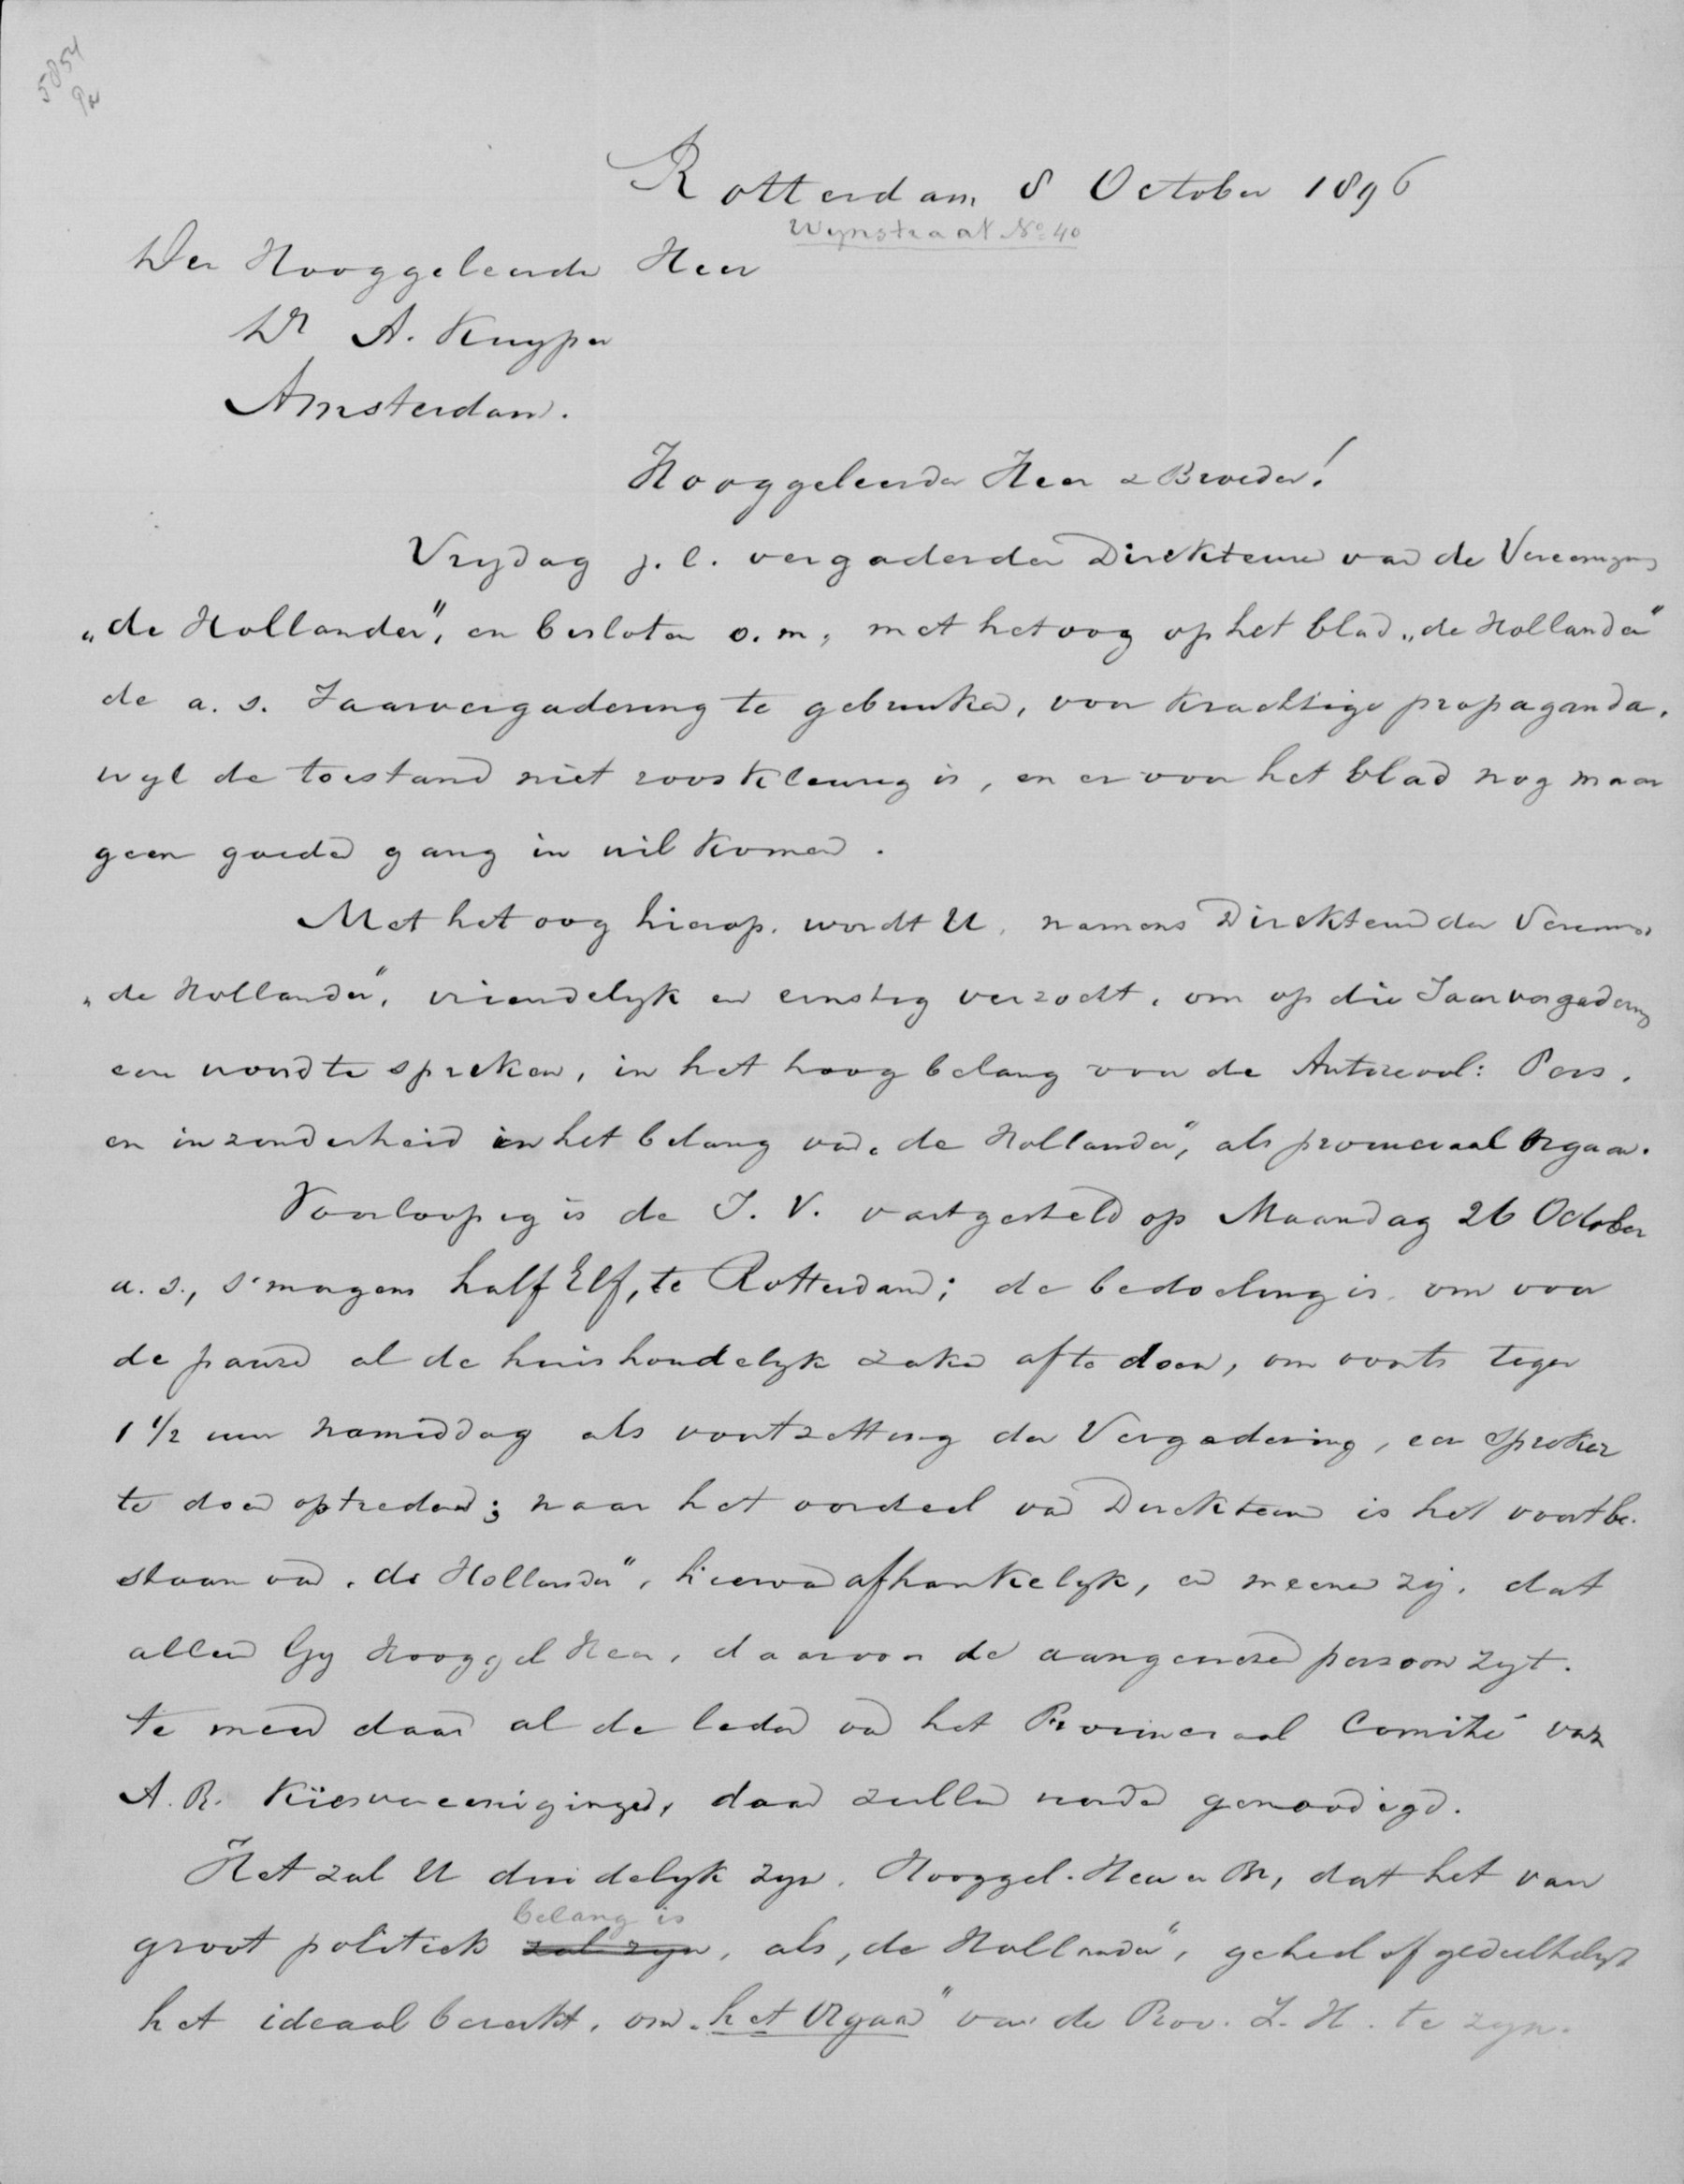 5854
Rotterdam 8 October 1896
Wynstraat No 40
Den Hooggeleerden Heer
Dr A. Kuyper
Amsterdam.
Hooggeleerde Heer & Broeder!
Vrydag j.l. vergaderden Direkteuren van de Vereeniging
„de Hollander", en besloten o.m, met het oog op het blad „de Hollander"
de a.s. Jaarvergadering te gebruiken, voor krachtige propaganda,
wyl de toestand niet rooskleurig is, en er voor het blad nog maar
geen goeden gang in wil komen.
Met het oog hierop, wordt U, namens Direkteuren der Vereenig
„de Hollander", vriendelyk en ernstig verzocht, om op die Jaarvergadering
een woord te spreken, in het hoog belang van de Antirevol: Pers,
en inzonderheid in het belang van „de Hollander", als provinciaal Orgaan.
Voorloopig is de J. V. vastgesteld op Maandag 26 October
a.s., s'morgens half Elf, te Rotterdam; de bedoeling is, om voor
de pauze al de huishoudelyk zaken af te doen, om voorts tegen
1 1/2 uur namiddag als voortzetting der Vergadering, een spreker
te doen optreden; naar het oordeel van Direkteuren is het voortbe-
staan van „de Hollander", hiervan afhankelyk, en meenen zij, dat
alleen Gy Hooggel Heer, daarvoor de aangewezen persoon zyt.
te meer daar al de leden van het Provinciaal Comité van
A. R. Kiesvereenigingen, daar zullen worden genoodigd.
Het zal U duidelyk zyn, Hooggel. Heer en Br, dat het van
belang is
groot politiek zal zyn, als „de Hollander", geheel of gedeeltelyk
het ideaal bereikt, om „het Orgaan" van de Prov. Z. H. te zyn.